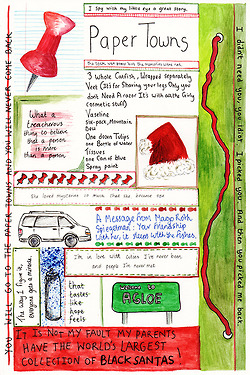 I spy with my liked eye a great story.
Paper Towns
3 Whole Catfish, Wrapped separately
Veet (It's for Shaving your legs Only you
don't Need A razor It's with all the Girly
Cosmetic stuff)
Vaseline
six-pack, Mountain
Dew
One dozen Tulips
one Bottle of water
Tissues
one Can of blue
Spray paint
What a
treacherous
thing to believe
that a person
is more
than a person
She loved mysteries so much that she became one
A Message from Margo Roth
Spiegelman: Your friendship
with her, it sleeps with the fishes.
I'm in love with cities I've never been
and people I've never met
The way I figure it,
everyone gets a miracle.
that
tastes
like
hope
feels
Welcome to
AGLOE
IT IS NOT MY FAULT MY PARENTS
HAVE THE WORLD'S LARGEST
COLLECTION OF BLACK SANTAS!
YOU WILL GO TO THE PAPER TOWNS AND YOU WILL NEVER COME BACK
I didn't need you, you idiot. I picked you. And then you picked me back